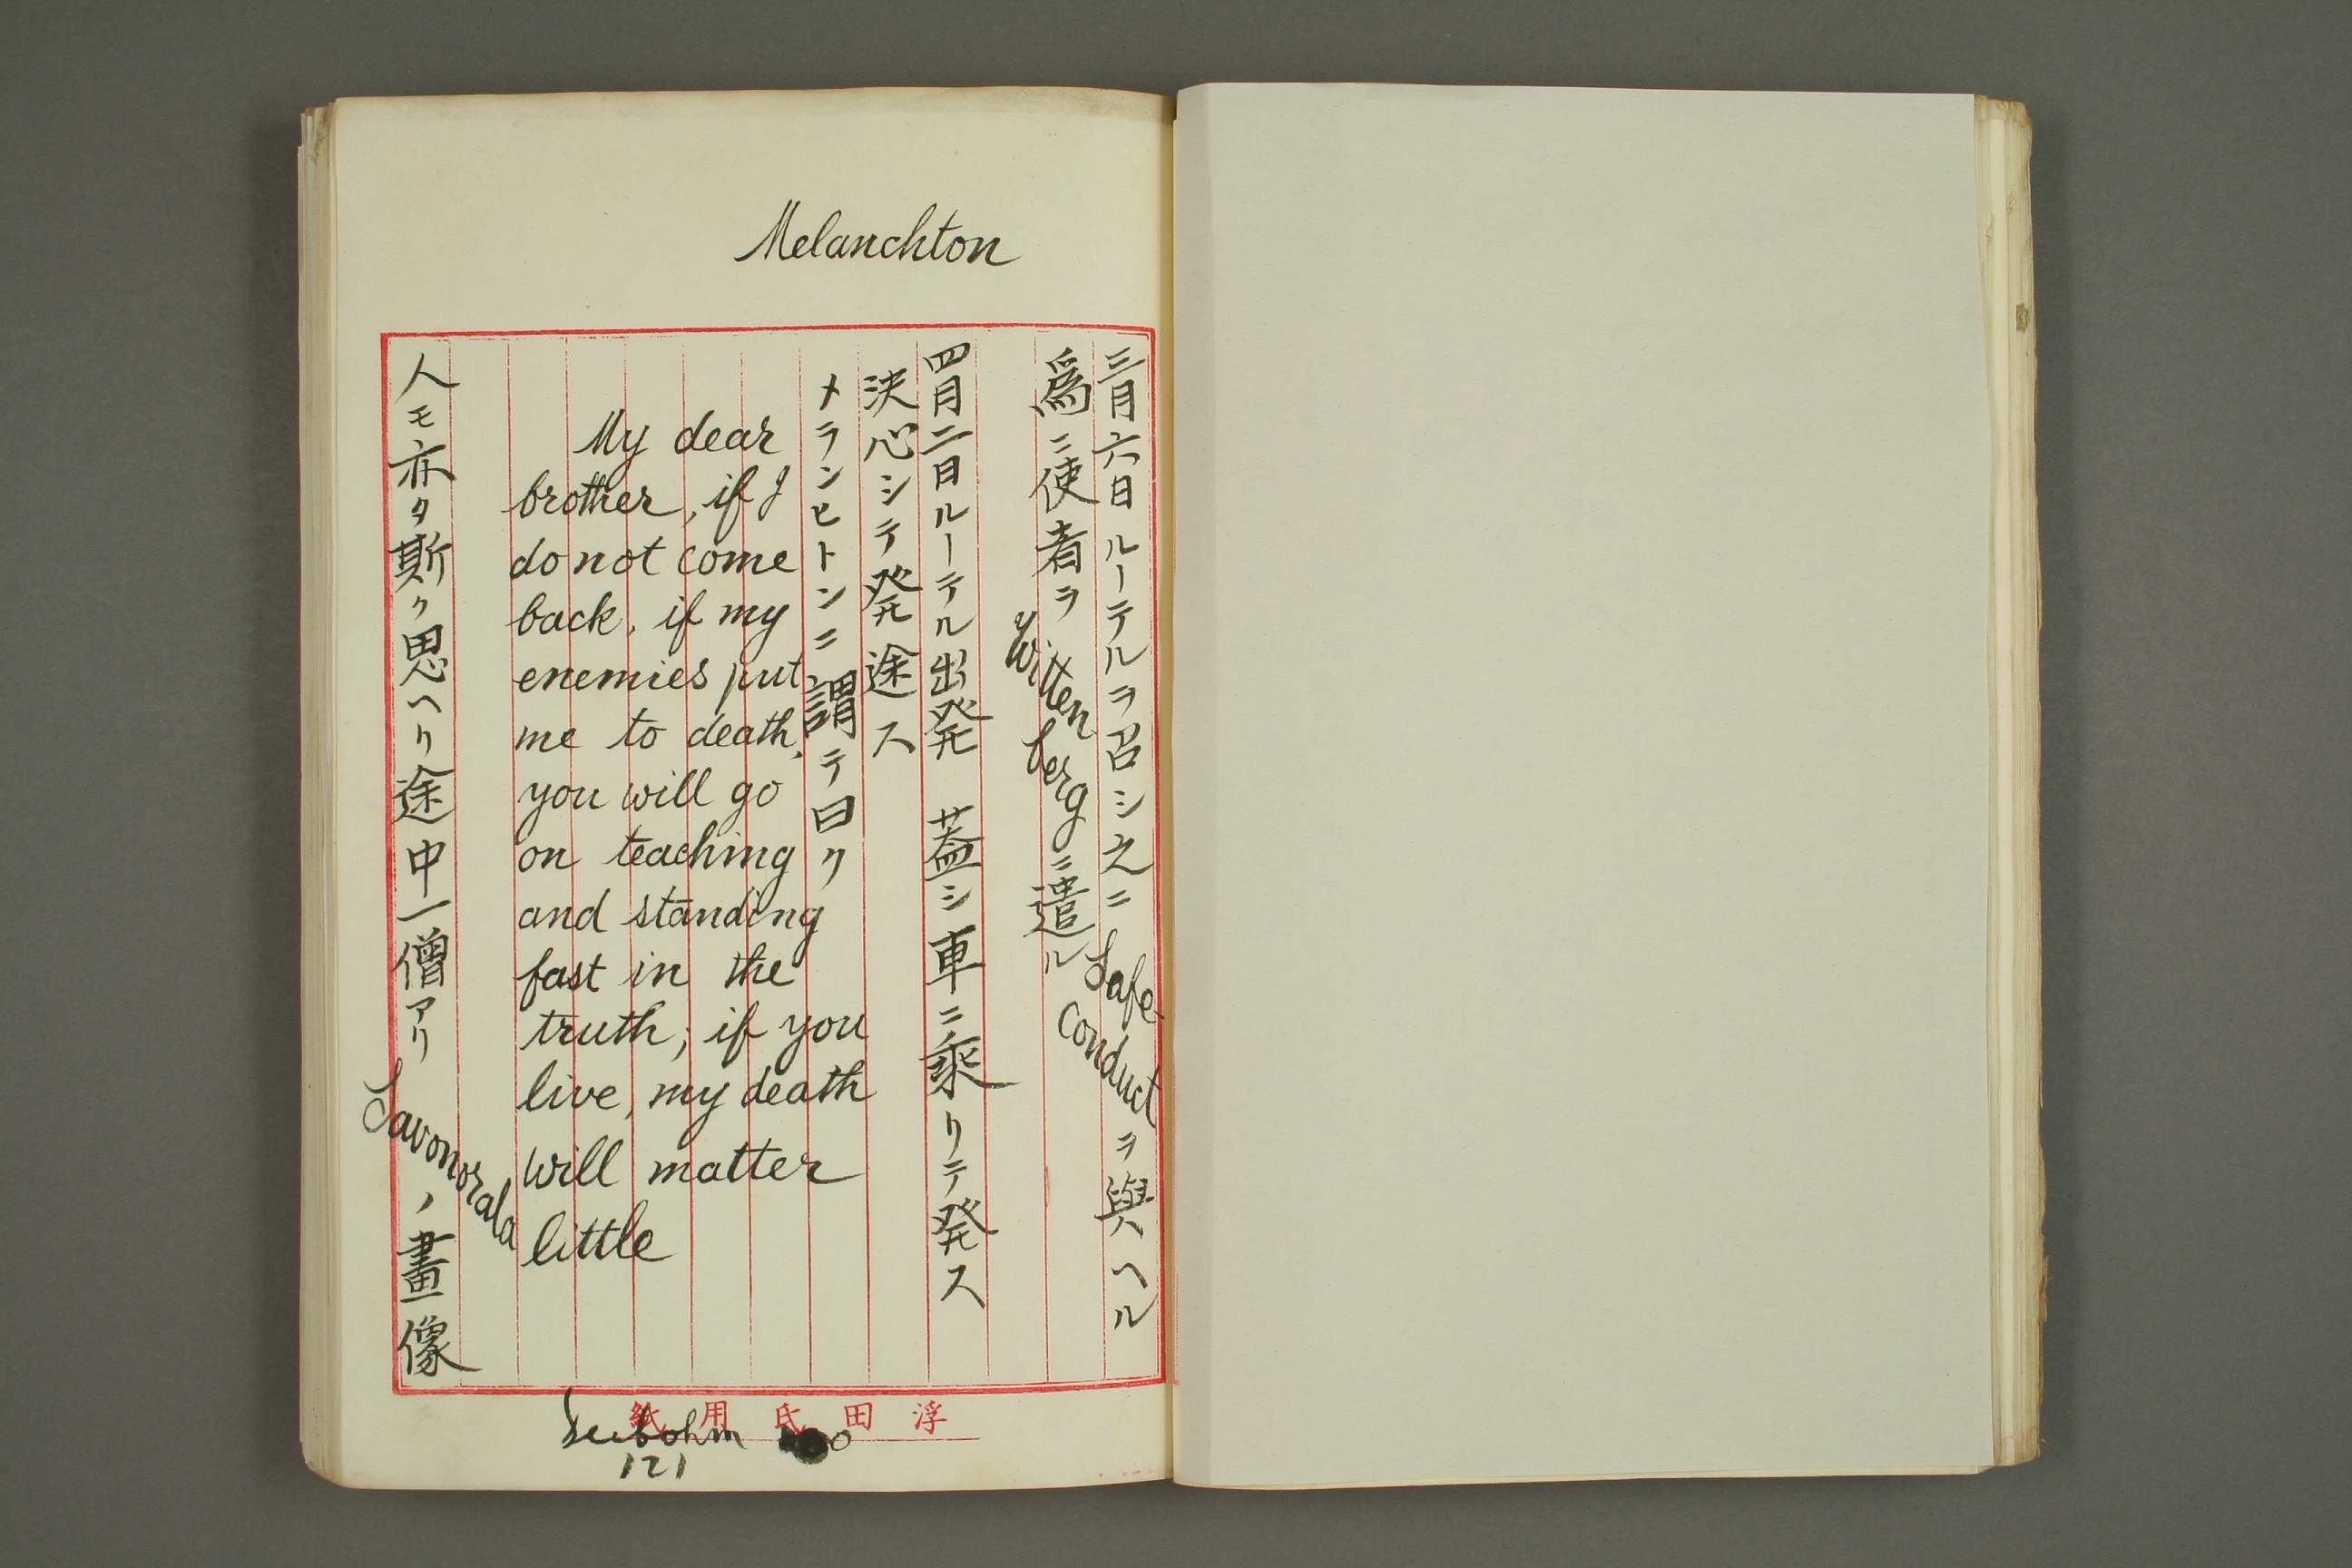 Melanchton
三月六日ルーテルヲ召シ之ニ Safe-conduct ヲ與ヘル
爲ニ使者ヲ Wittenberg ニ遣ル
四月二日ルーテル出発 蓋シ車ニ乘リテ発ス
決心シテ発途ス
メランヒトンニ謂テ曰ク
My dear
brother, if I
do not come
back, if my
enemies put
me to death,
you will go
on teaching
and standing
fast in the
truth; if you
live, my death
will matter
little
人モ亦タ斯ク思ヘリ途中一僧アリ Savonorala ノ畫像
浮田氏用紙
Seebohm
121